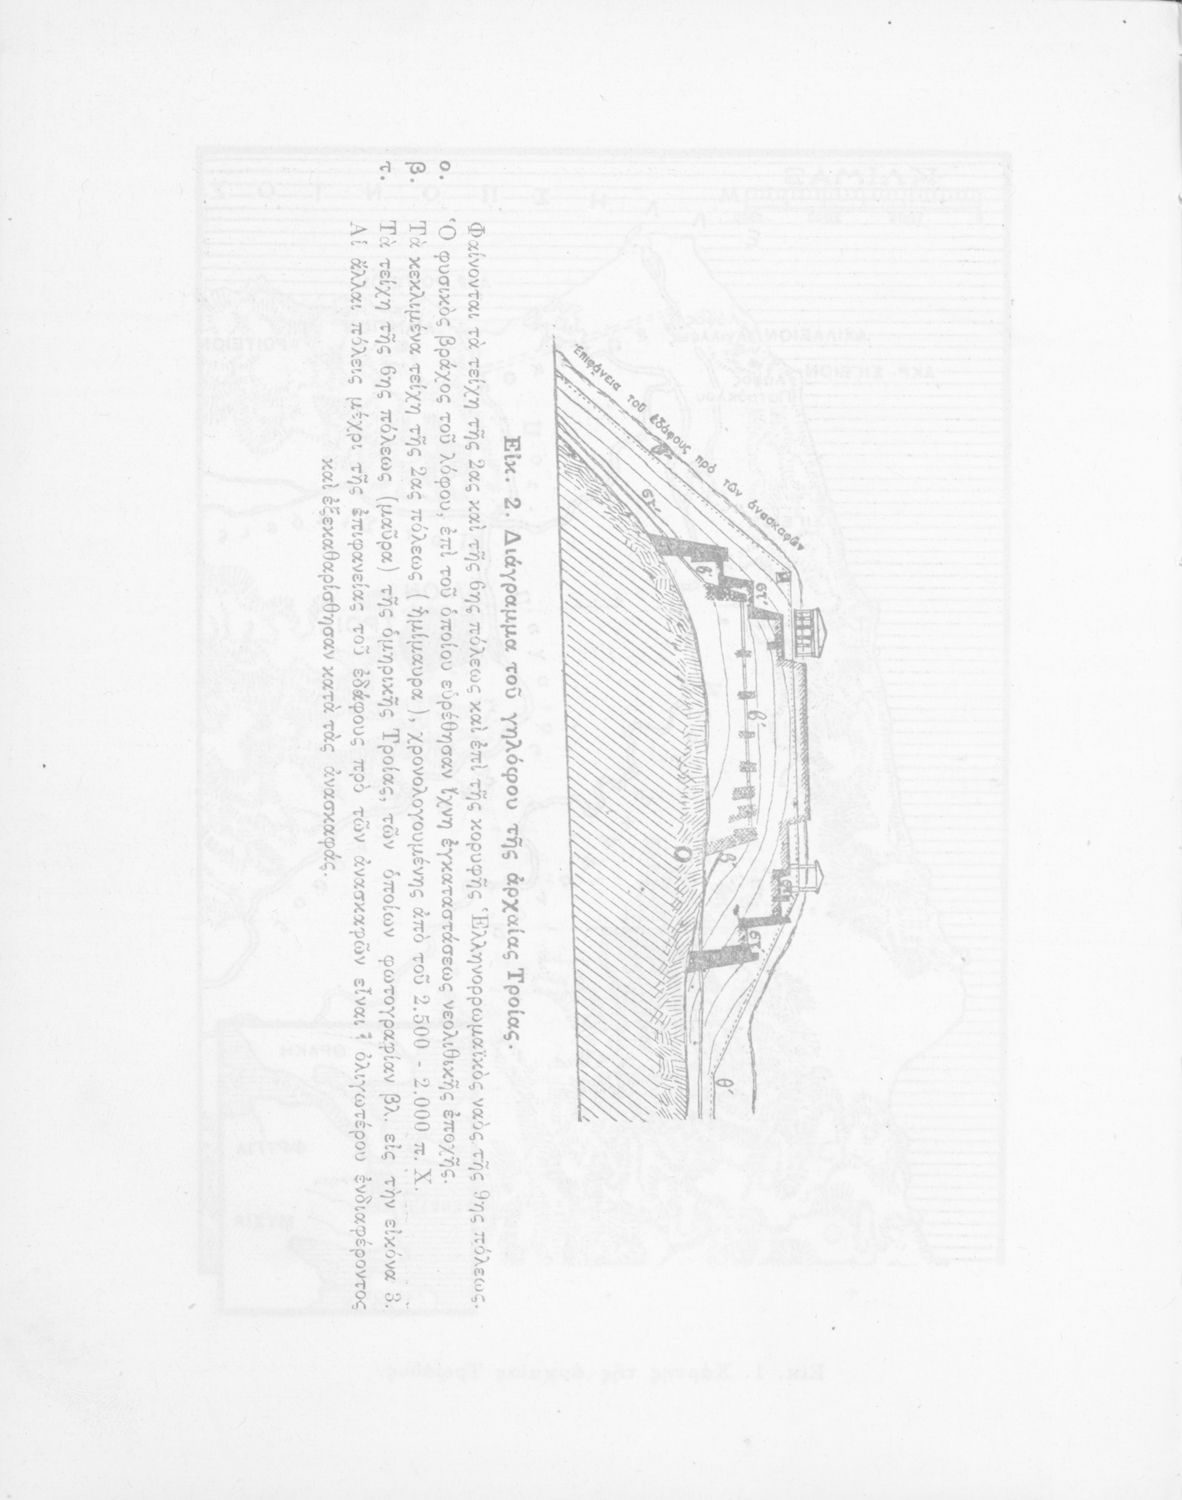 ἐπιφάνεια τοῦ ἐδάφους πρό τῶν ἀνασκαφῶν
θ'
στ'
β'
στ'
β'
β'
O
στ'
θ'
Εἰκ. 2. Διάγραμμα τοῦ γηλόφου τῆς ἀρχαίας Τροίας.
Φαίνονται τὰ τείχη τῆς 2ας καὶ τῆς 6ης πόλεως καὶ ἐπὶ τῆς κορυφῆς Ἑλληνορρωμαϊκὸς ναὸς τῆς 9ης πόλεως.
ο. Ὁ φυσικὸς βράχος τοῦ λόφου, ἐπὶ τοῦ ὁποίου εὑρέθησαν ἴχνη ἐγκαταστάσεως νεολιθικῆς ἐποχῆς.
β. Τὰ κεκλιμένα τείχη τῆς 2ας πόλεως (ἡμίμαυρα), χρονολογουμένης ἀπὸ τοῦ 2.500 - 2.000 π. Χ.
τ. Τὰ τείχη τῆς 6ης πόλεως (μαῦρα) τῆς ὁμηρικῆς Τροίας, τῶν ὁποίων φωτογραφίαν βλ. εἰς τὴν εἰκόνα 3.
Αἱ ἄλλαι πόλεις μέχρι τῆς ἐπιφανείας τοῦ ἐδάφους πρὸ τῶν ἀνασκαφῶν εἶναι ὀλιγωτέρου ἐνδιαφέροντος
καὶ ἐξεκαθαρίσθησαν κατὰ τὰς ἀνασκαφάς.